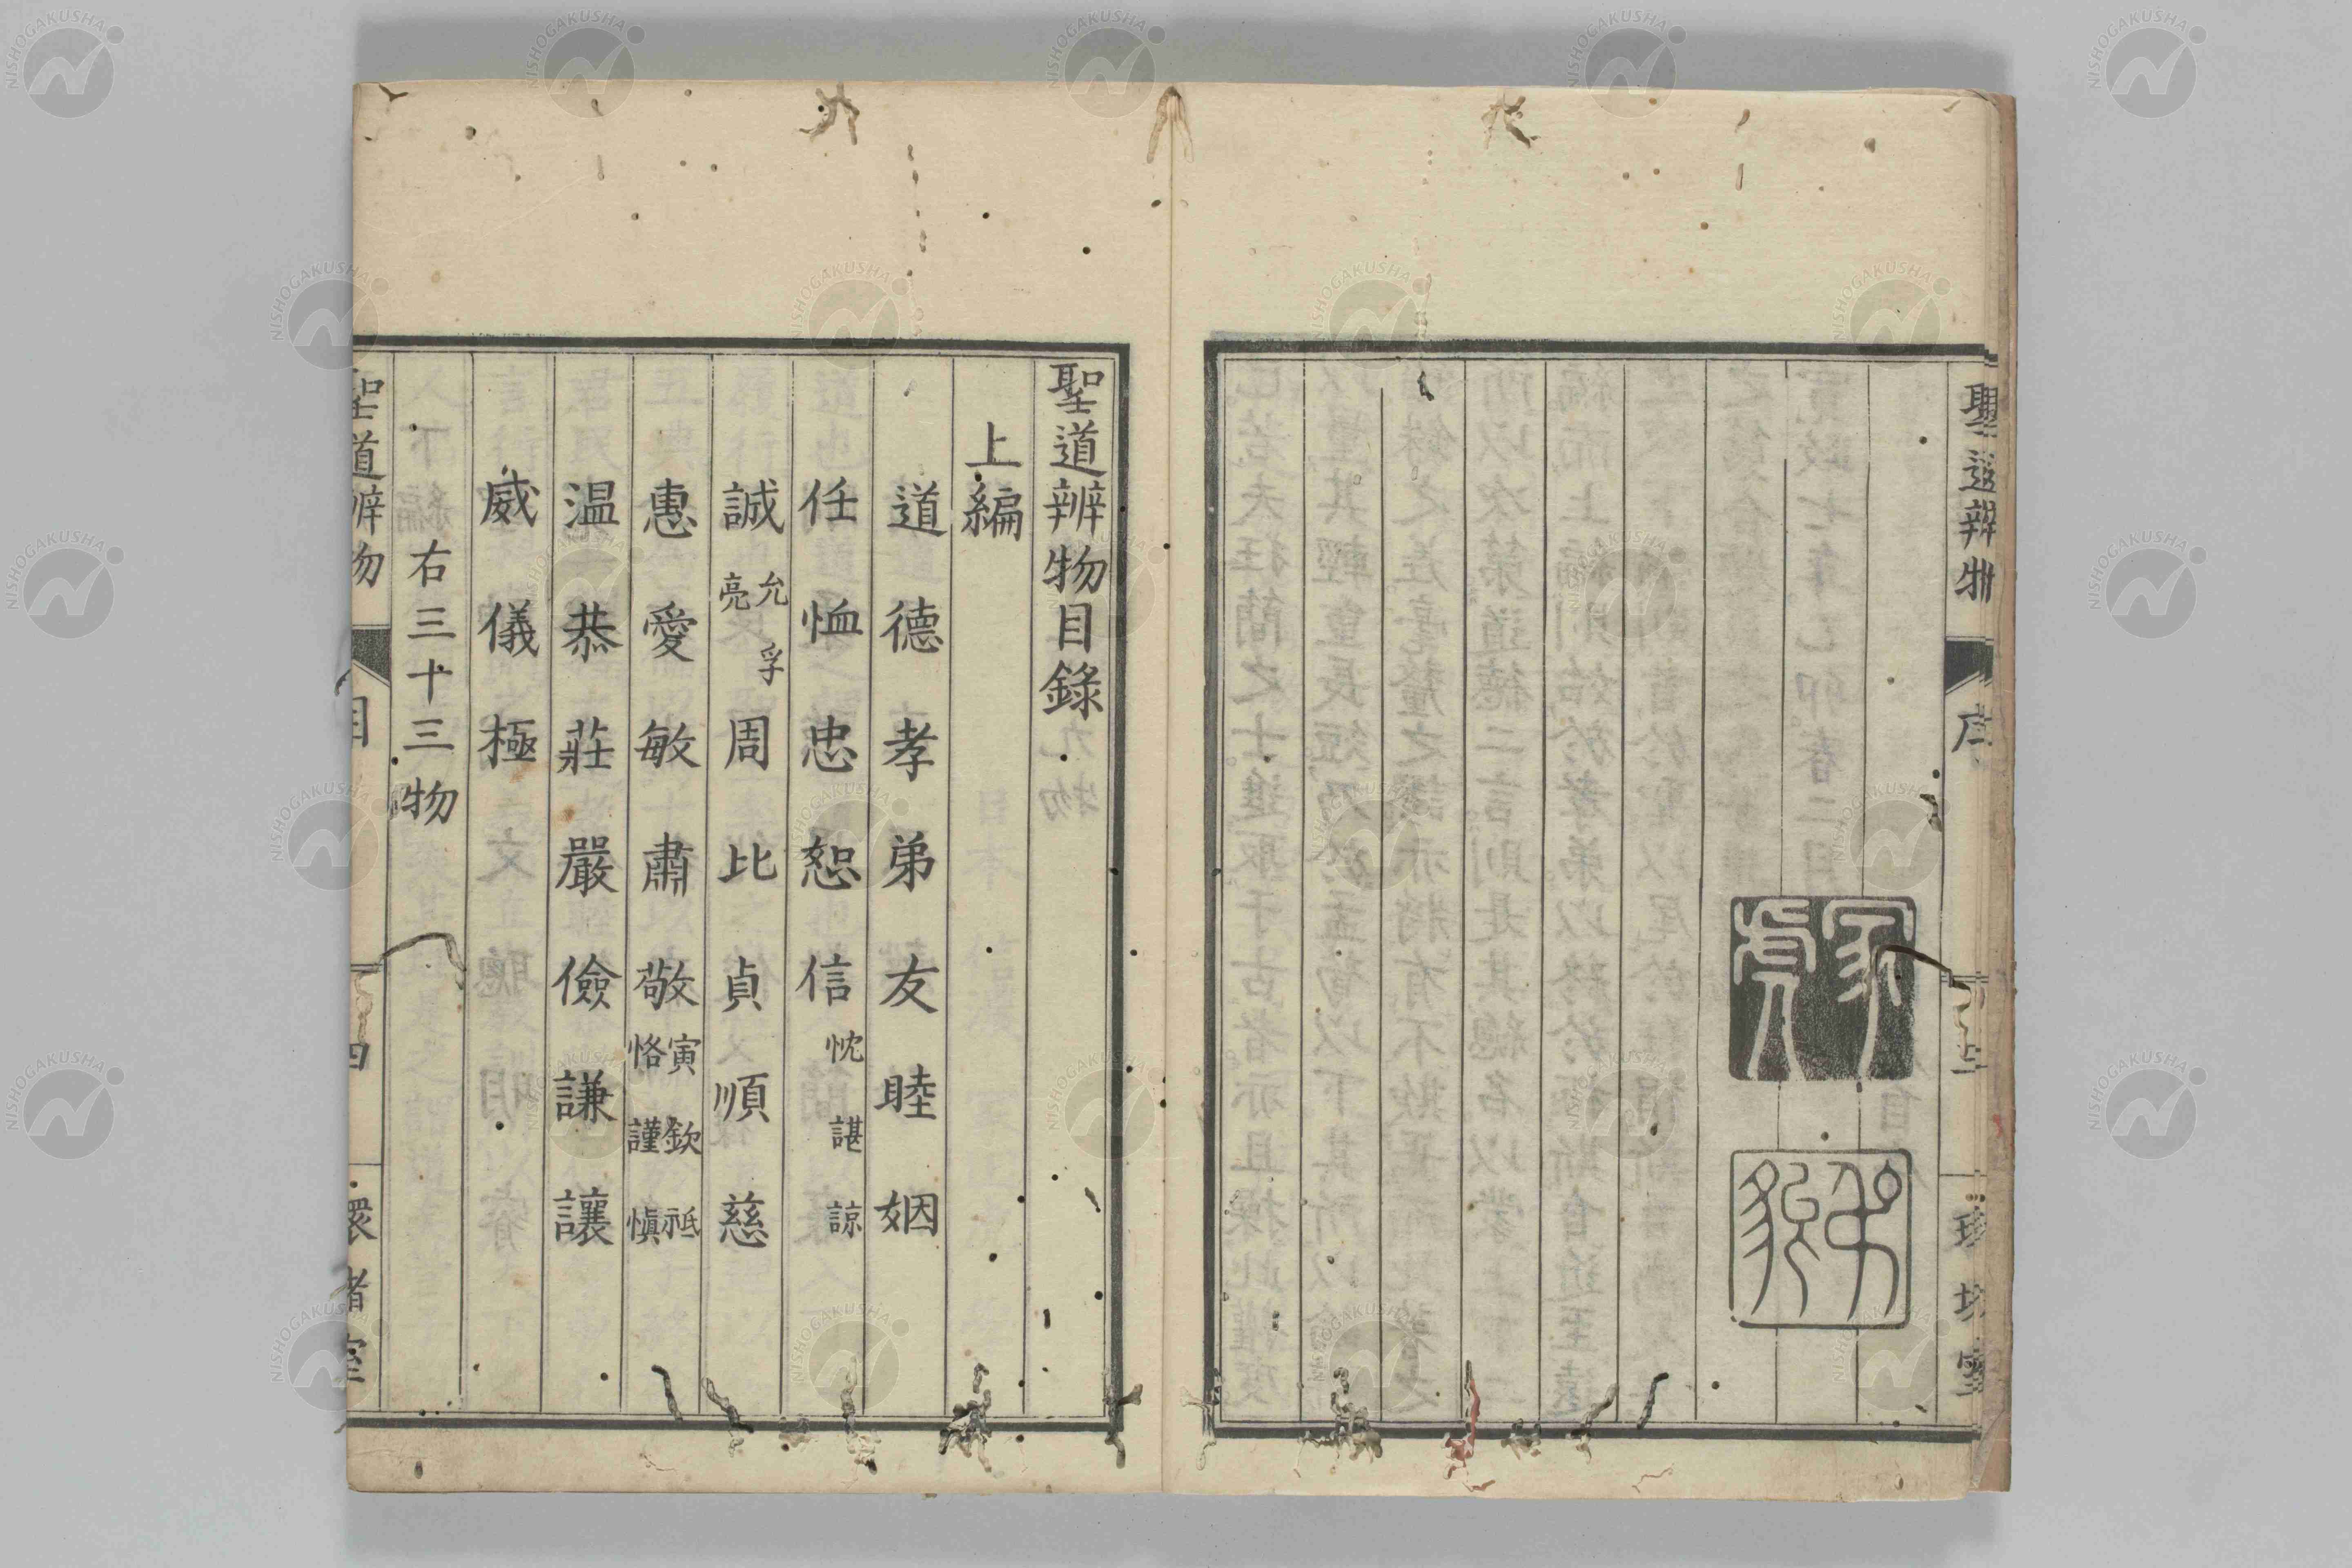 聖道辨物
序
聖道辨物目錄
上編
道 德 孝 弟 友 睦 姻
任 恤 忠 恕 信 忱 諶 諒
誠 允 孚 亮 周 比 貞 順 慈
惠 愛 敏 肅 敬 寅 欽 祗 恪 謹 愼
温 恭 莊 嚴 儉 謙 讓
威 儀 極
右三十三物
聖道辨物
目
四
環堵室
NISHOGAKUSHA